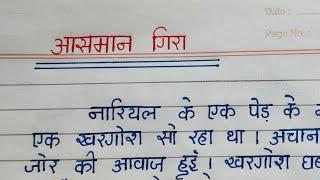 Date :
Page No. :
आसमान गिरा
नारियल के एक पेड़ के
एक खरगोश सो रहा था । अचान
जोर की आवाज हुई । खरगोश घब